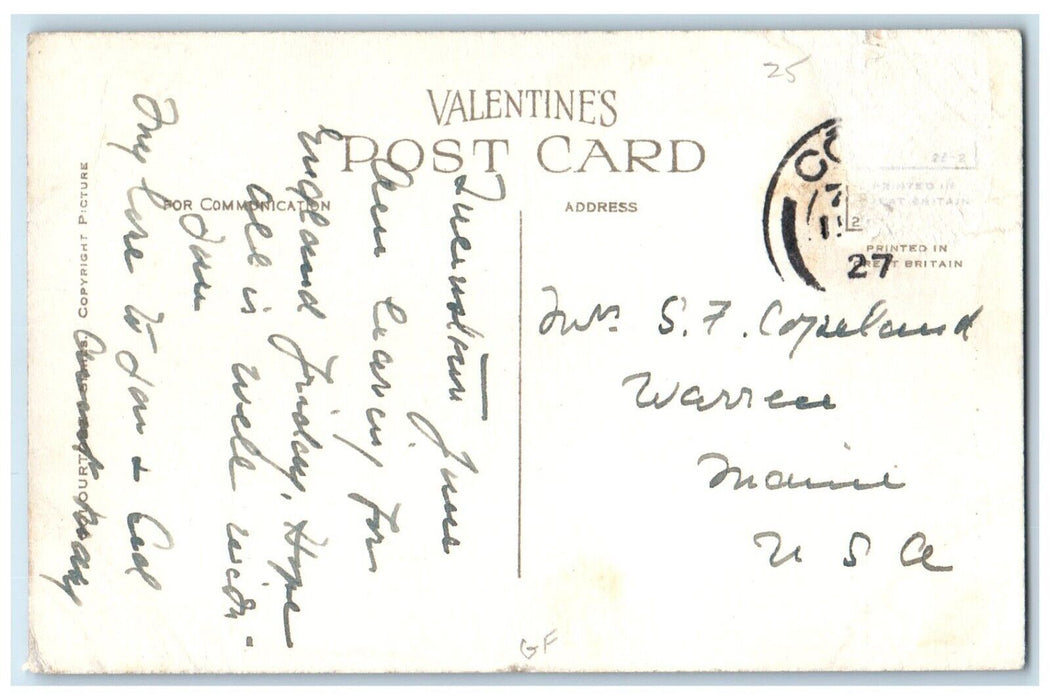 25
VALENTINE'S
POST CARD
FOR COMMUNICATION
ADDRESS
COPYRIGHT PICTURE
CO
27
22-2
PRINTED IN
GREAT BRITAIN
PRINTED IN
GREAT BRITAIN
Queenstown June
Am leaving for
England Friday, Hope
all is well with
you
My love to you &
Mrs. S. F. Copeland
Warren
Maine
U S A
GF